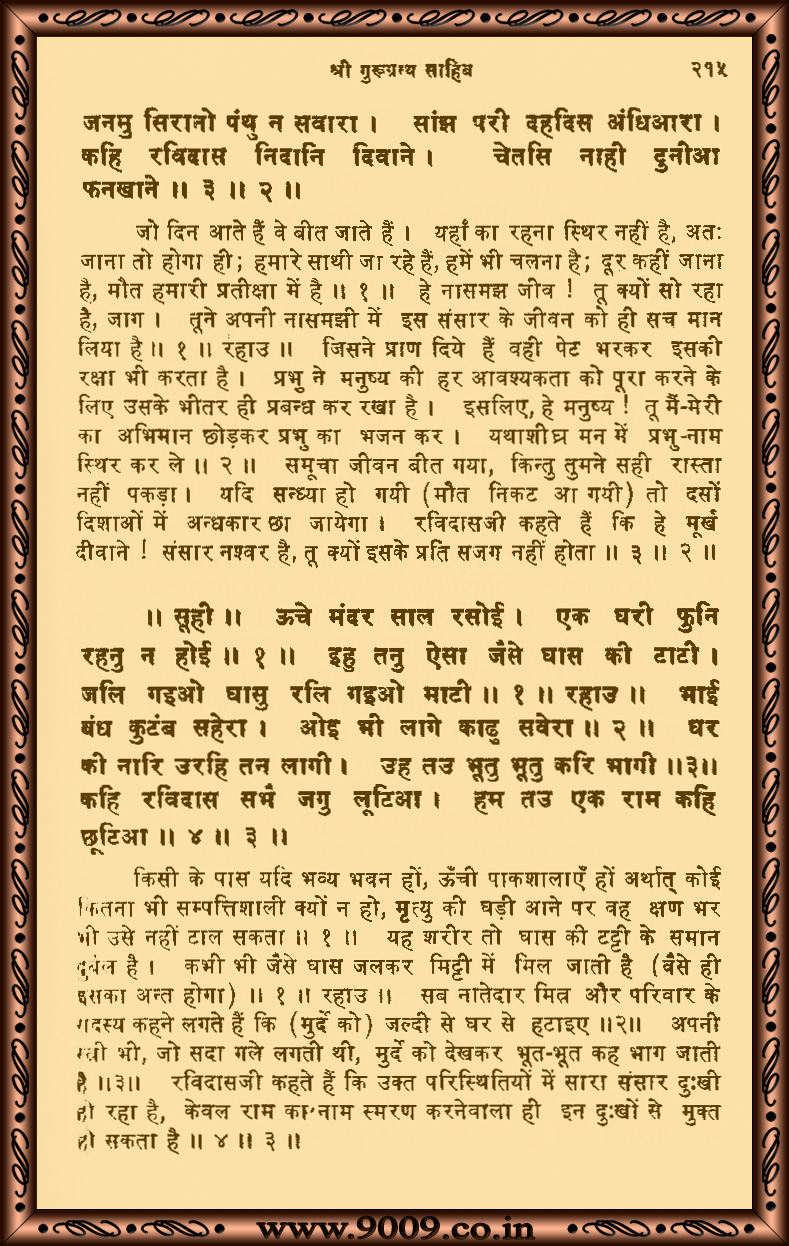 श्री गुरूग्रन्थ साहिब २१५
जनमु सिरानो पंथु न सवारा । सांझ परी दहदिस अंधिआरा ।
कहि रविदास निदानि दिवाने । चेतसि नाही दुनीआ
फनखाने ॥ ३ ॥ २ ॥
जो दिन आते हैं वे बीत जाते हैं । यहाँ का रहना स्थिर नहीं है, अतः
जाना तो होगा ही; हमारे साथी जा रहे हैं, हमें भी चलना है; दूर कहीं जाना
है, मौत हमारी प्रतीक्षा में है ॥ १ ॥ हे नासमझ जीव ! तू क्यों सो रहा
है, जाग । तूने अपनी नासमझी में इस संसार के जीवन को ही सच मान
लिया है ॥ १ ॥ रहाउ ॥ जिसने प्राण दिये हैं वही पेट भरकर इसकी
रक्षा भी करता है । प्रभु ने मनुष्य की हर आवश्यकता को पूरा करने के
लिए उसके भीतर ही प्रबन्ध कर रखा है । इसलिए, हे मनुष्य ! तू मैं-मेरी
का अभिमान छोड़कर प्रभु का भजन कर । यथाशीघ्र मन में प्रभु-नाम
स्थिर कर ले ॥ २ ॥ समूचा जीवन बीत गया, किन्तु तुमने सही रास्ता
नहीं पकड़ा । यदि सन्ध्या हो गयी (मौत निकट आ गयी) तो दसों
दिशाओं में अन्धकार छा जायेगा । रविदासजी कहते हैं कि हे मूर्ख
दीवाने ! संसार नश्वर है, तू क्यों इसके प्रति सजग नहीं होता ॥ ३ ॥ २ ॥
॥ सूही ॥ ऊचे मंदर साल रसोई । एक घरी फुनि
रहनु न होई ॥ १ ॥ इहु तनु ऐसा जैसे घास की टाटी ।
जलि गइओ घासु रलि गइओ माटी ॥ १ ॥ रहाउ ॥ भाई
बंध कुटंब सहेरा । ओइ भी लागे काढु सवेरा ॥ २ ॥ घर
की नारि उरहि तन लागी । उह तउ भूतु भूतु करि भागी ॥३॥
कहि रविदास सभै जगु लूटिआ । हम तउ एक राम कहि
छूटिआ ॥ ४ ॥ ३ ॥
किसी के पास यदि भव्य भवन हों, ऊँची पाकशालाएँ हों अर्थात् कोई
कितना भी सम्पत्तिशाली क्यों न हो, मृत्यु की घड़ी आने पर वह क्षण भर
भी उसे नहीं टाल सकता ॥ १ ॥ यह शरीर तो घास की टट्टी के समान
दुर्बल है । कभी भी जैसे घास जलकर मिट्टी में मिल जाती है (वैसे ही
इसका अन्त होगा) ॥ १ ॥ रहाउ ॥ सब नातेदार मित्र और परिवार के
सदस्य कहने लगते हैं कि (मुर्दे को) जल्दी से घर से हटाइए ॥२॥ अपनी
स्त्री भी, जो सदा गले लगती थी, मुर्दे को देखकर भूत-भूत कह भाग जाती
है ॥३॥ रविदासजी कहते हैं कि उक्त परिस्थितियों में सारा संसार दुःखी
हो रहा है, केवल राम का नाम स्मरण करनेवाला ही इन दुःखों से मुक्त
हो सकता है ॥ ४ ॥ ३ ॥
www.9009.co.in